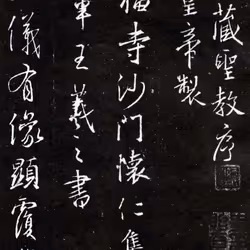 藏聖教序
皇帝製
福寺沙门懷仁集
軍王羲之書
儀有像顯覆